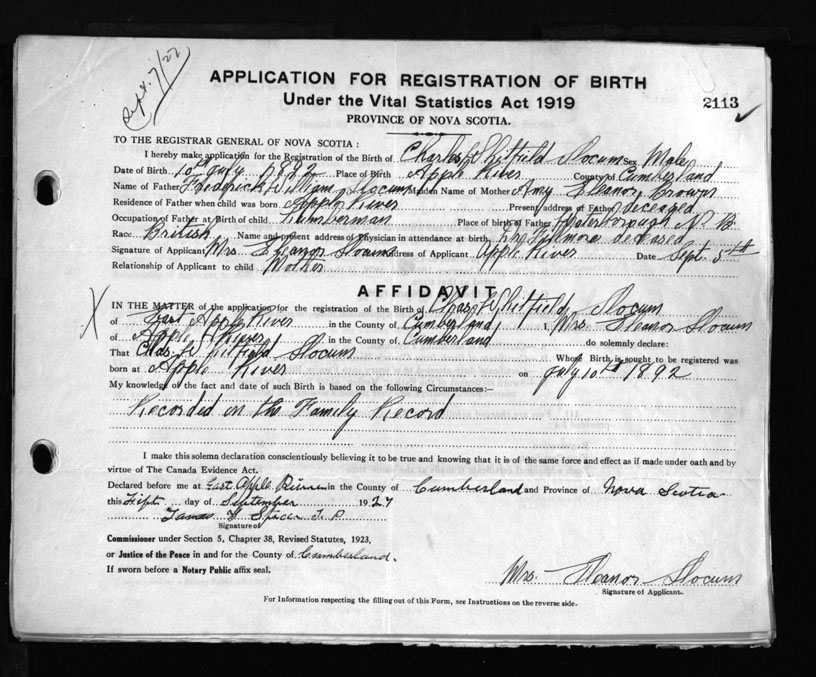 Sept. 7/27
APPLICATION FOR REGISTRATION OF BIRTH
Under the Vital Statistics Act 1919
2113
PROVINCE OF NOVA SCOTIA.
TO THE REGISTRAR GENERAL OF NOVA SCOTIA :
I hereby make application for the Registration of the Birth of Charles Whitfield Slocum Sex Male
Date of Birth 10 July 1892 Place of Birth Apple River County of Cumberland
Name of Father Frederick William Slocum Maiden Name of Mother Amy Eleanor Brown
Residence of Father when child was born Apple River Present address of Father deceased
Occupation of Father at Birth of child Lumberman Place of birth of Father Waterborough N. B
Race British Name and present address of Physician in attendance at birth Dr. Fillmore deceased
Signature of Applicant Mrs Eleanor Slocum Address of Applicant Apple River Date Sept. 5th
Relationship of Applicant to child Mother
AFFIDAVIT
IN THE MATTER of the application for the registration of the Birth of Chas. Whitfield Slocum
of East Apple River in the County of Cumberland I, Mrs. Eleanor Slocum
of Apple River in the County of Cumberland do solemnly declare:
That Chas. Whitfield Slocum Whose Birth is sought to be registered was
born at Apple River on July 10th 1892
My knowledge of the fact and date of such Birth is based on the following Circumstances:—
Recorded in the Family Record
I make this solemn declaration conscientiously believing it to be true and knowing that it is of the same force and effect as if made under oath and by
virtue of The Canada Evidence Act.
Declared before me at East Apple River in the County of Cumberland and Province of Nova Scotia
this Fift day of September 1927
James W Spicer J. P.
Signature of
Commissioner under Section 5, Chapter 38, Revised Statutes, 1923,
or Justice of the Peace in and for the County of Cumberland.
If sworn before a Notary Public affix seal.
Mrs. Eleanor Slocum
Signature of Applicant.
For Information respecting the filling out of this Form, see Instructions on the reverse side.